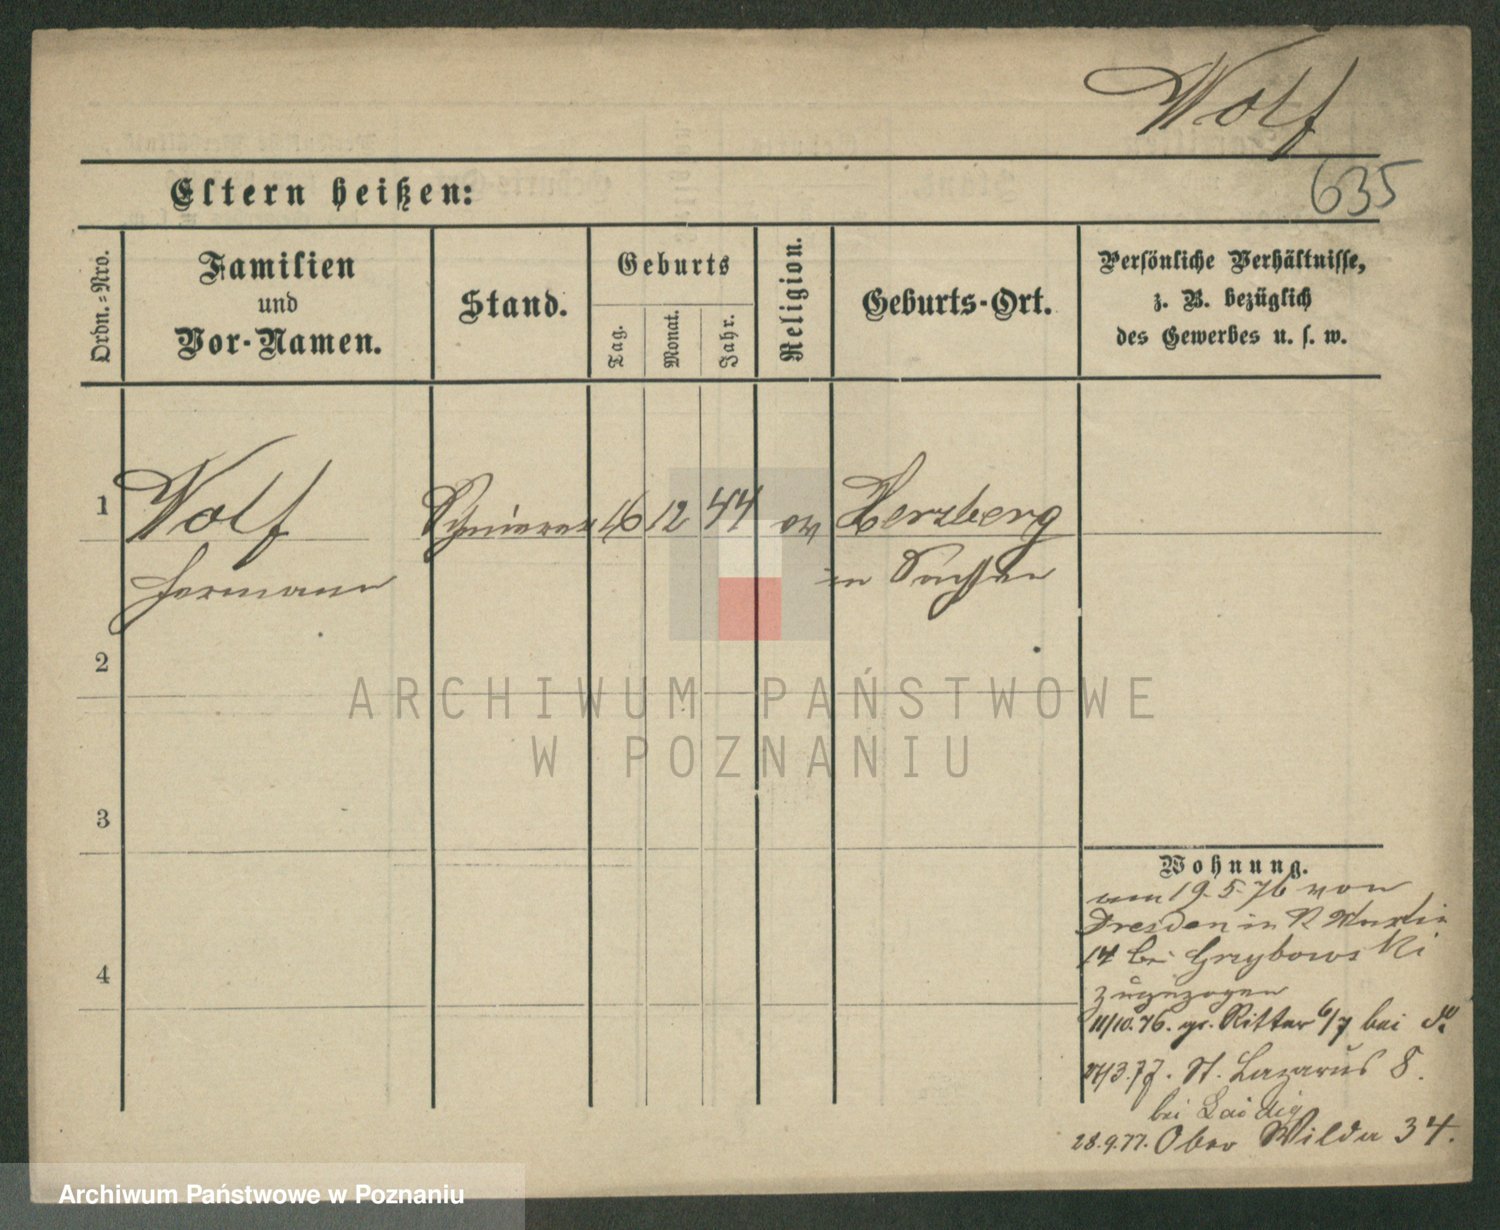 Wolf
635
Eltern heißen:
Ordn.=Nro.
Familien
und
Vor-Namen.
Stand.
Geburts
Tag.
Monat.
Jahr.
Religion.
Geburts-Ort.
Persönliche Verhältnisse,
z. B. bezüglich
des Gewerbes u. s. w.
1 Wolf 16 12 44 ev Herzberg
Hermann in Sachsen
2
ARCHIWUM PAŃSTWOWE
W POZNANIU
3
4
Wohnung.
am 19.5.76 von
Dresden in Martin
14 bei Grzybowski
zugezogen
11/10.76. gr. Ritter 6/7 bei
3.77. St. Lazarus 8.
bei Laidig
28.9.77. Ober Wilda 34.
Archiwum Państwowe w Poznaniu